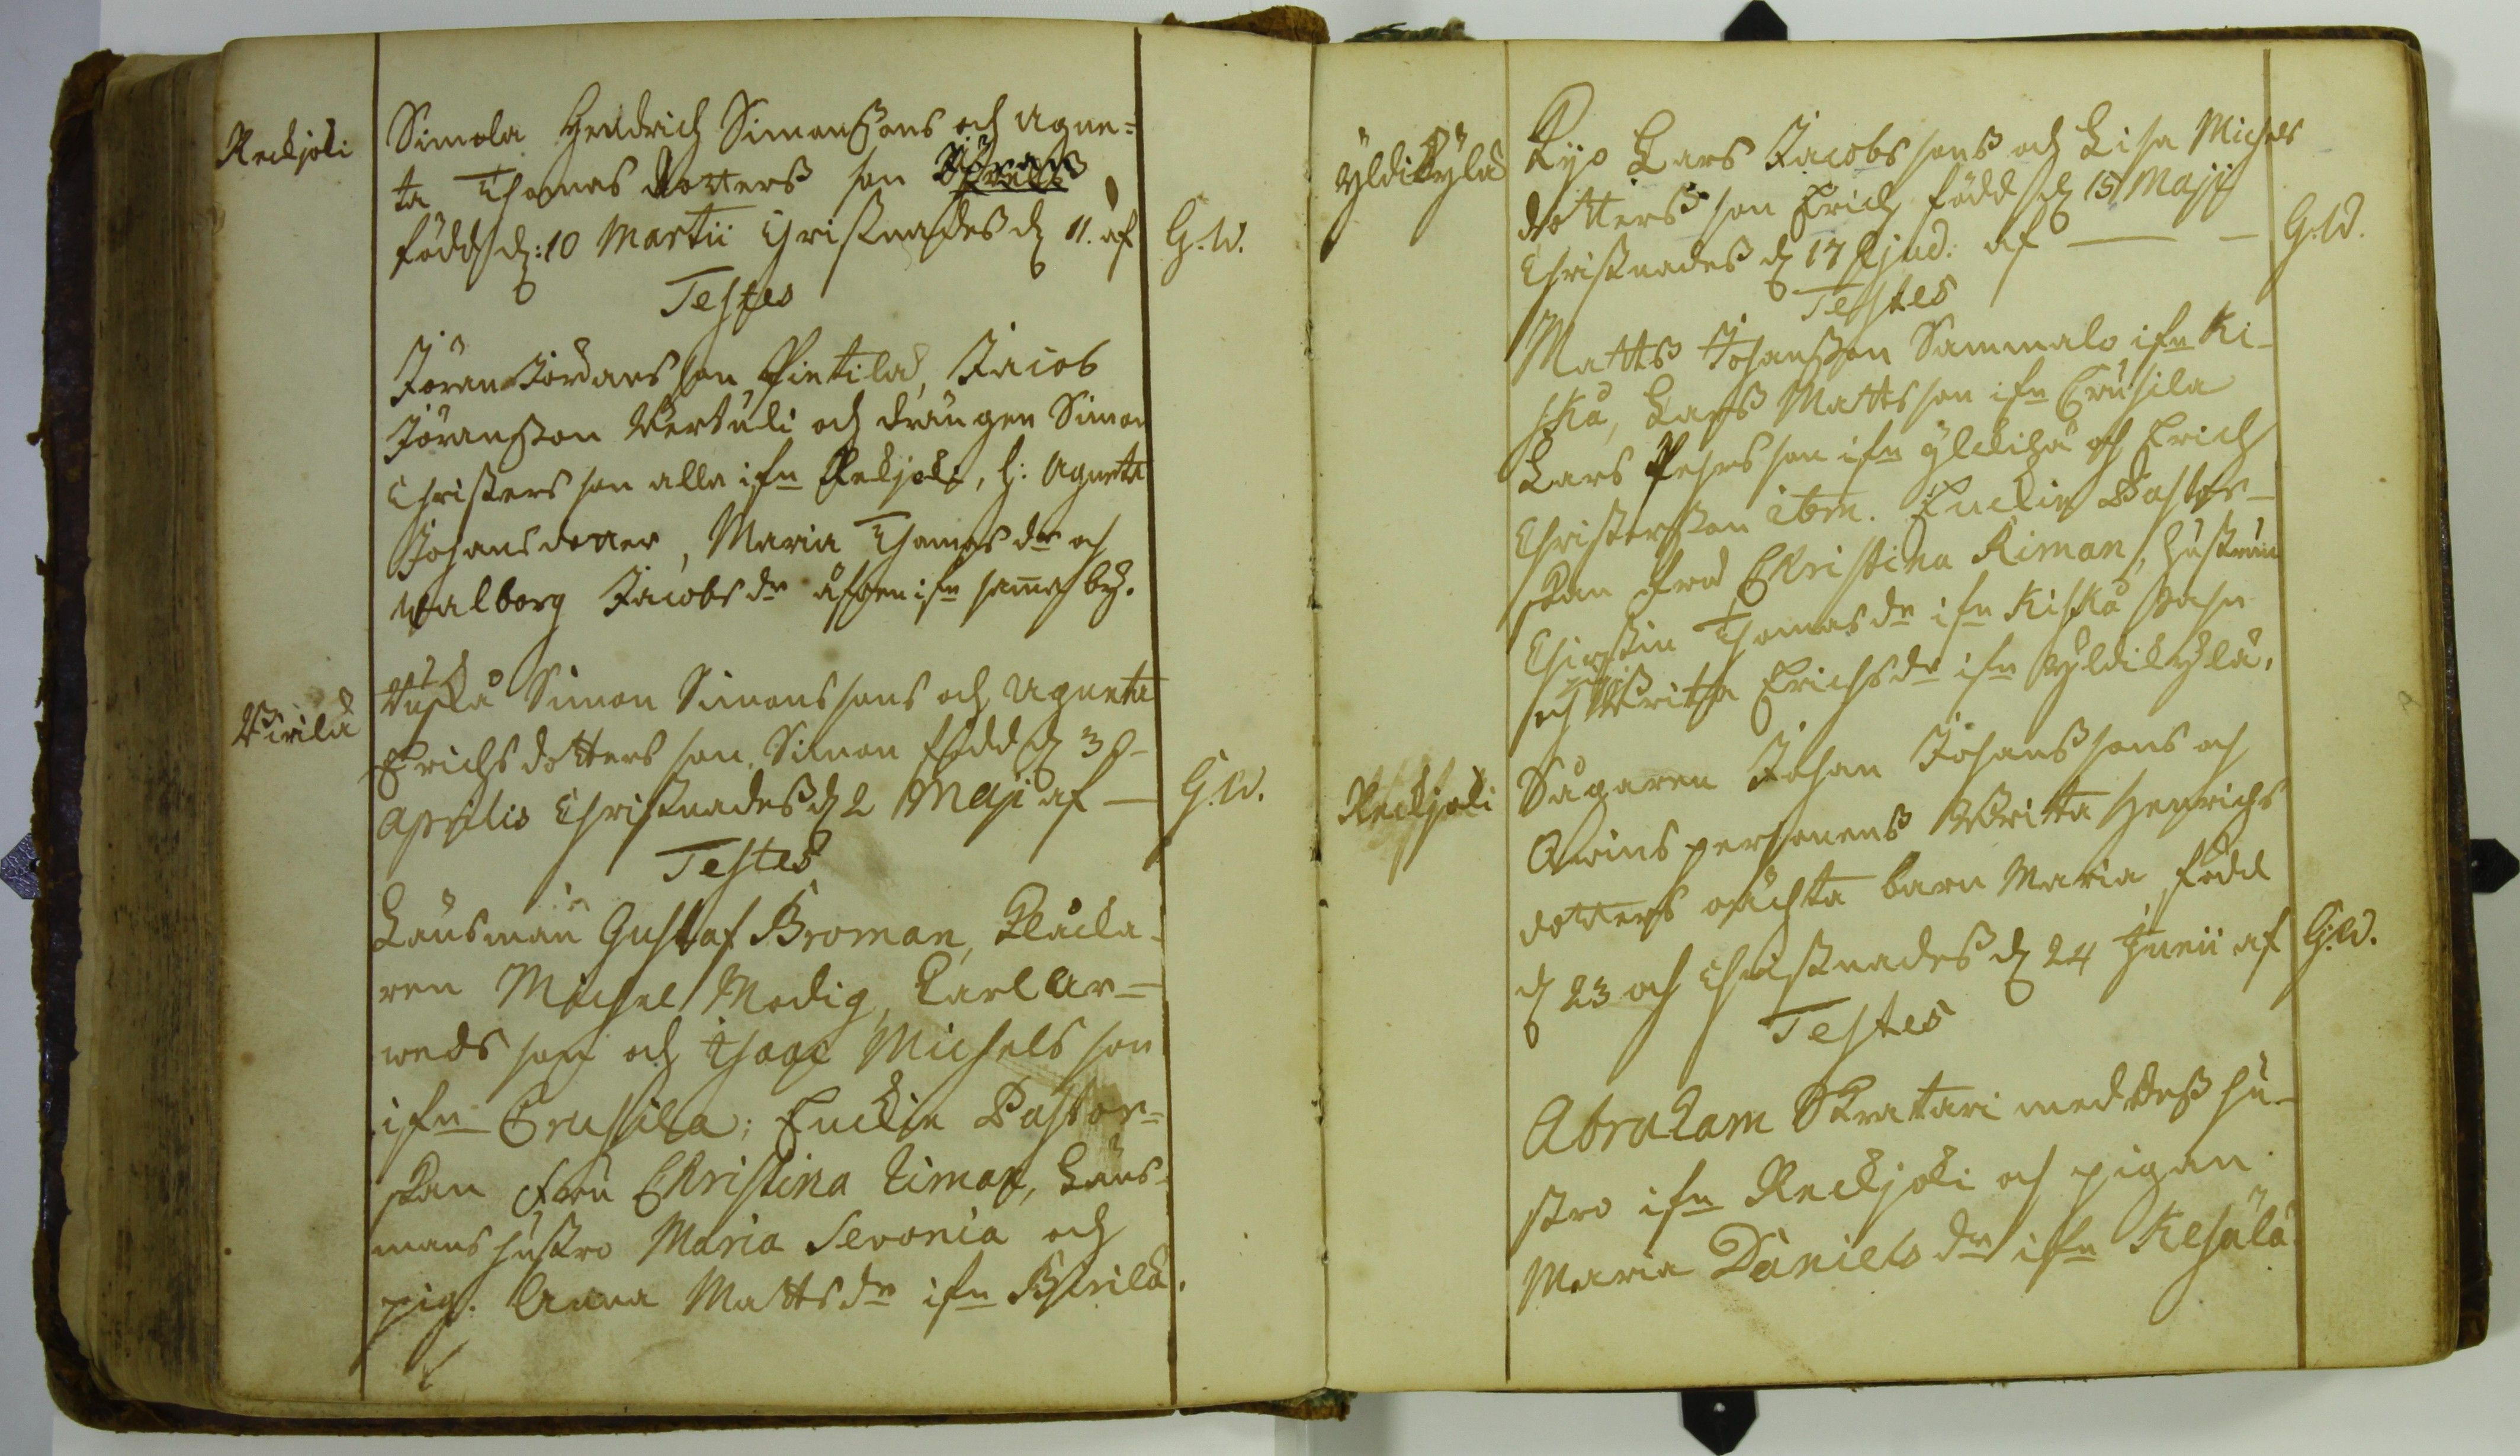 Reckjoki
Simola Hendrich Simonssons och Agne-
ta Thomas dotterss son Jöran
född d: 10 Martii Christnadess d 11. af
G.W.
Testes
Jöran Jörans son Pietilä, Jacob
Jöransson Bertuli och drängen Simon
Christers son alla ifn Reckjoki, h: Agneta
Johansdotter, Maria Thomas dr och
Walborg Jacobs dr äfven ifn samma by.
Virilä
Simon Simonssons och Agneta
Erichsdotters son Simon född d 30
Aprilis Christnadess d 2 Maji af —
G.W.
Testes
Länsman Gustaf Broman, Klåcka-
ren Michel Modig, Carl Ar-
weds son och Isaac Michels son
ifn Crusila; Enckie Pastor-
skan fru Christina Riman, Läns-
mans hustro Maria Sevonia och
pig. Anna Matts dr ifn Virilä.
Yldikylä
Kyo Lars Jacobs sonss och Lisa Michels
dotterss son Erich född d 15 Maji
Christnadess d 17 Ejusd: af —
G.W.
Testes
Matts Johansson Sammalo ifn Ki-
sku, Larss Matts son ifn Crusila
Lars Pehrs son ifn och Erich
Christersson ibm. Enckie Pastor-
skan fru Christina Riman, hustrun
Chirstin Thomas dr ifn Kisku
och Britha Erichs dr ifn Yldikylä.
Reckjoki
Sågaren Johan Johanss sons och
Qwins personenss Britta Henrichs
dotters oächta barn Maria född
d 23 och Christnadess d 24 Junii af
G.W.
Testes
Abraham Skratari med dess hu-
stro ifn Reckjoki och pigan
Maria Daniels dr ifn Kesälä